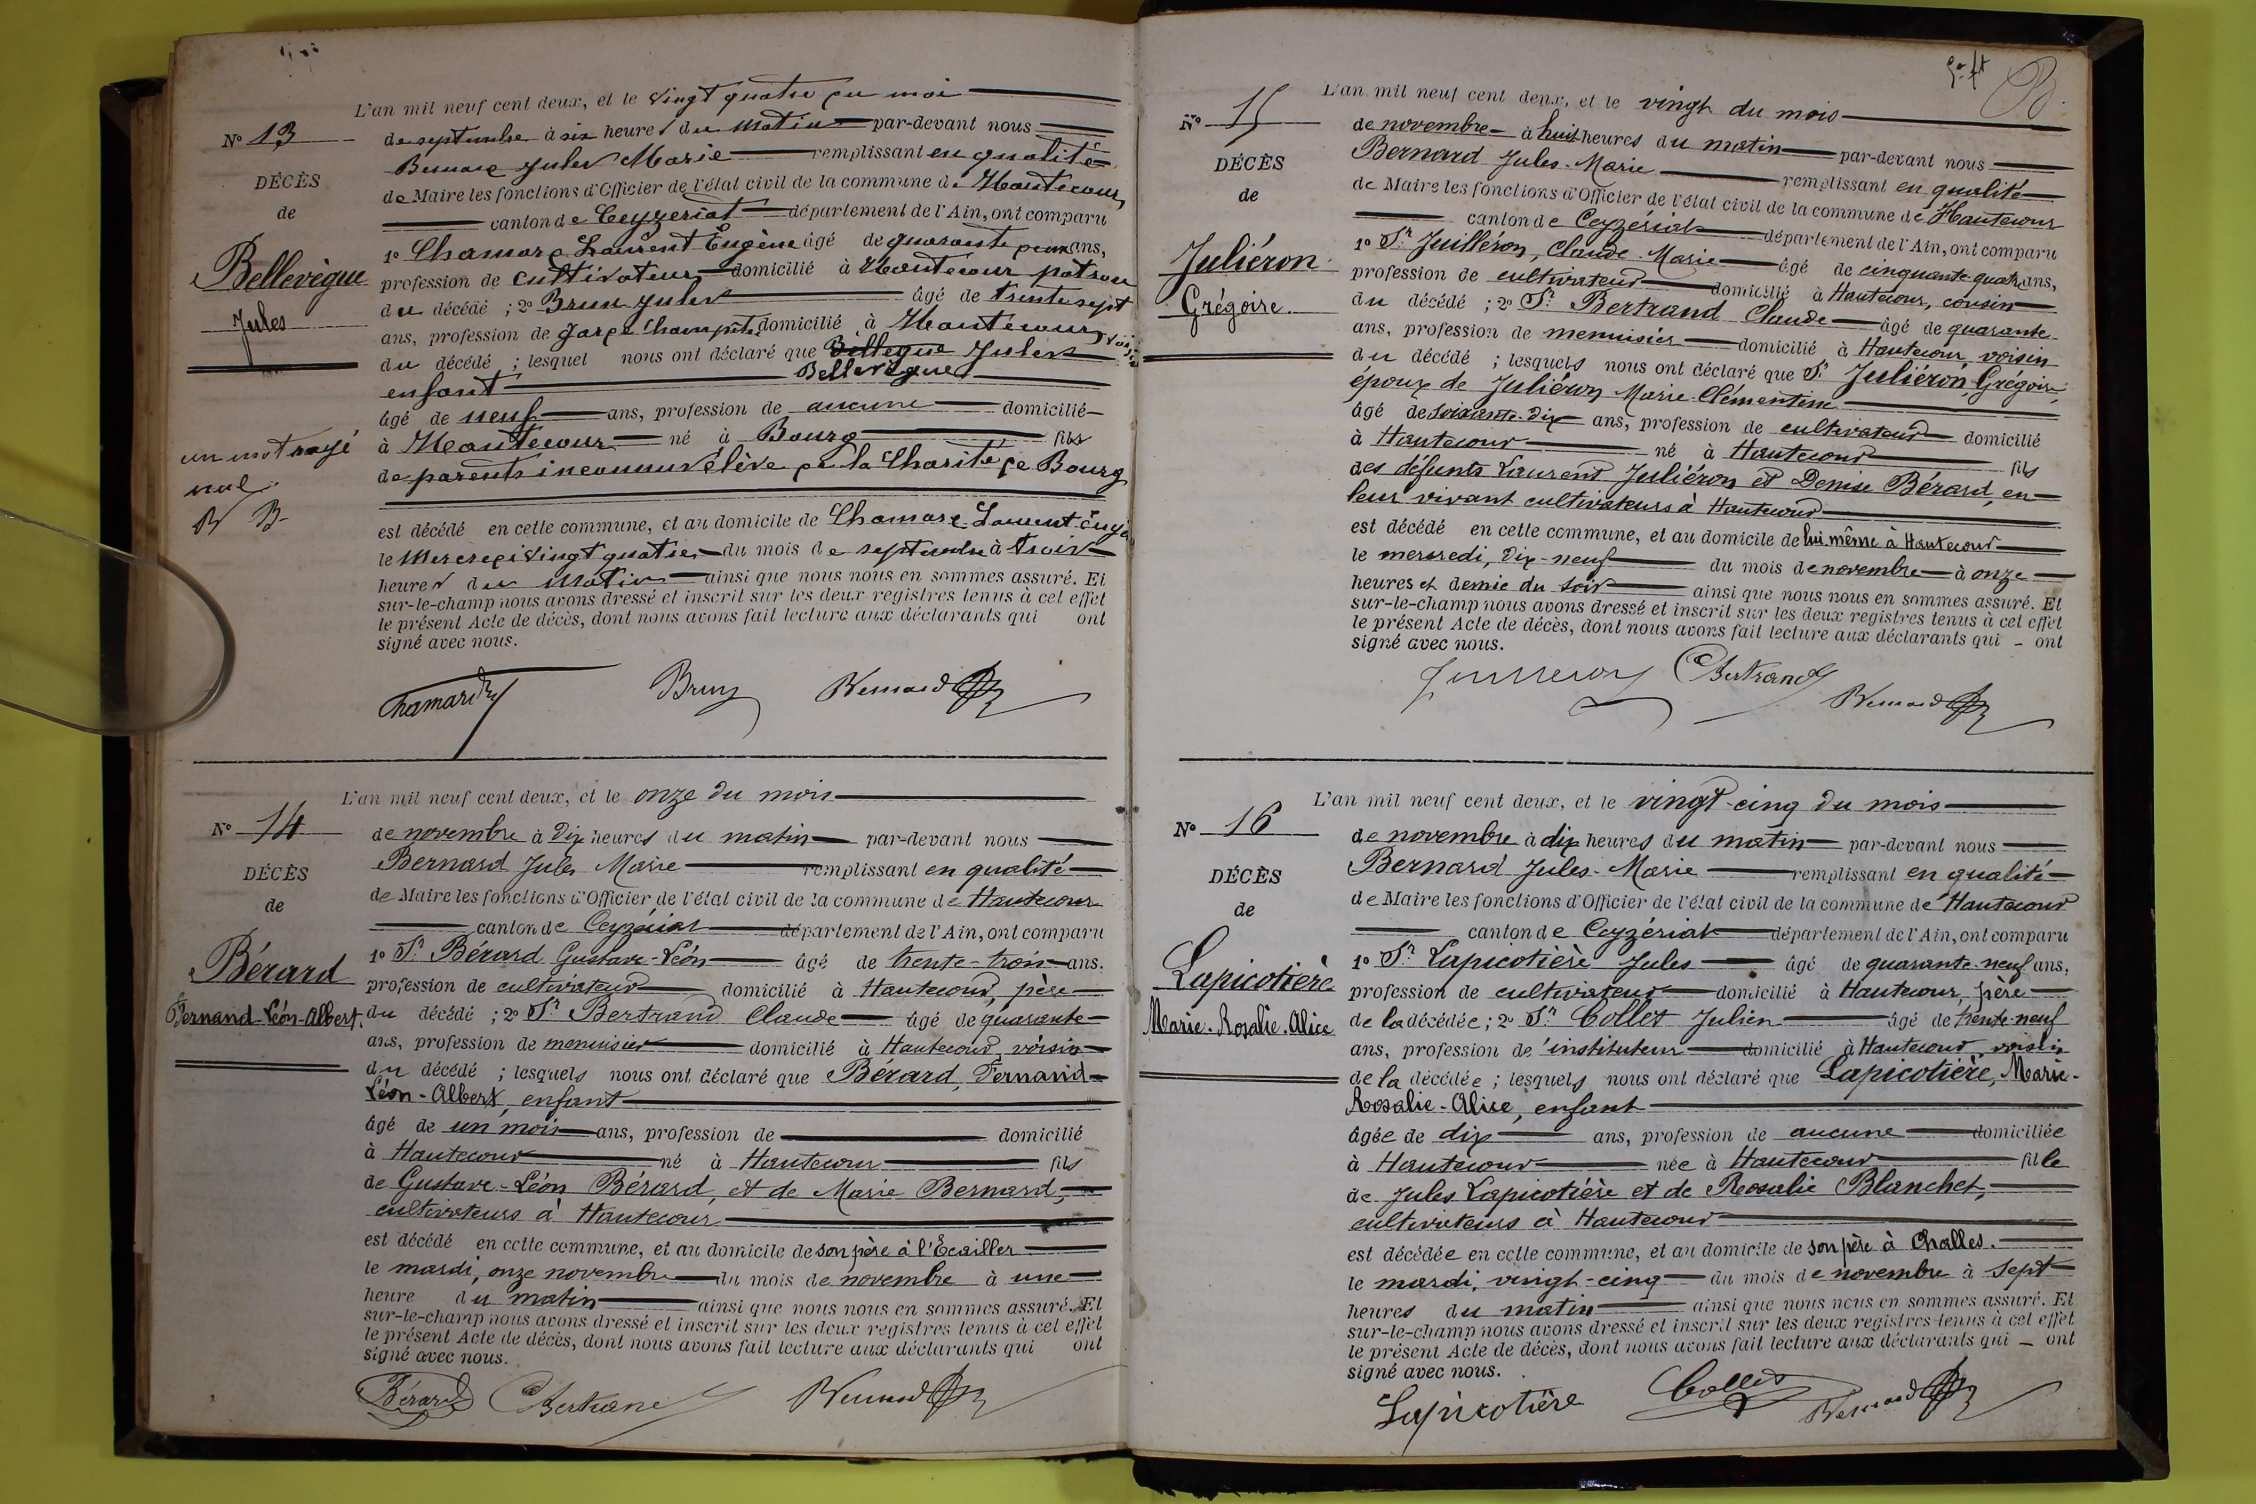 L'an mil neuf cent deux, et le vingt quatre du moi
N° 13
de septembre à six heures du Matin par-devant nous
Bernard Jules Marie remplissant en qualité
DÉCÈS
de Maire les fonctions d'Officier de l'état civil de la commune de Hautecour
de
canton de Ceyzeriat département de l'Ain, ont comparu
1° Chamard Laurent Eugène âgé de quarante deux ans,
Bellevègue
profession de cultivateur domicilié à Hautecour patron
du décédé ; 2° Brun Jules âgé de trente sept
Jules
ans, profession de garde champêtre domicilié à Hautecour voisin
du décédé ; lesquel nous ont déclaré que Bellegue Jules
Bellevègue
enfant
âgé de neuf ans, profession de aucune domicilié
un mot rayé
à Hautecour né à Bourg fils
nul.
de parents inconnus élève de la Charité de Bourg
B B
est décédé en cette commune, et au domicile de Chamard Laurent Eugè
le Mercredi vingt quatre du mois de septembre à trois
heures du Matin ainsi que nous nous en sommes assuré. Et
sur-le-champ nous avons dressé et inscrit sur les deux registres tenus à cet effet
le présent Acte de décès, dont nous avons fait lecture aux déclarants qui ont
signé avec nous.
Chamard Brun Bernard
L'an mil neuf cent deux, et le onze du mois
N° 14
de novembre à dix heures du matin par-devant nous
Bernard Jules Marie remplissant en qualité
DÉCÈS
de Maire les fonctions d'Officier de l'état civil de la commune de Hautecour
de
canton de Ceyzériat département de l'Ain, ont comparu
1° Sr Bérard Gustave-Léon âgé de trente-trois ans.
Bérard
profession de cultivateur domicilié à Hautecour, père
Fernand-Léon-Albert.
du décédé ; 2° Sr Bertrand Claude âgé de quarante
ans, profession de menuisier domicilié à Hautecour, voisin
du décédé ; lesquels nous ont déclaré que Bérard, Fernand-
Léon-Albert, enfant
âgé de un mois ans, profession de domicilié
à Hautecour né à Hautecour fils
de Gustave-Léon Bérard, et de Marie Bernard,
cultivateurs à Hautecour
est décédé en cette commune, et au domicile de son père à l'Ecailler
le mardi, onze novembre du mois de novembre à une
heure du matin ainsi que nous nous en sommes assuré. Et
sur-le-champ nous avons dressé et inscrit sur les deux registres tenus à cet effet
le présent Acte de décès, dont nous avons fait lecture aux déclarants qui ont
signé avec nous.
Bérard Bertrand Bernard
B.
L'an mil neuf cent deux, et le vingt du mois
N° 15
de novembre à huit heures du matin par-devant nous
DÉCÈS
Bernard Jules-Marie remplissant en qualité
de
de Maire les fonctions d'Officier de l'état civil de la commune de Hautecour
canton de Ceyzériat département de l'Ain, ont comparu
Juliéron
1° Sr Juilléron, Claude-Marie âgé de cinquante-quatre ans,
profession de cultivateur domicilié à Hautecour, cousin
Grégoire.
du décédé ; 2° Sr Bertrand Claude âgé de quarante
ans, profession de menuisier domicilié à Hautecour, voisin
du décédé ; lesquels nous ont déclaré que Sr Juliéron, Grégoire,
époux de Juliéron Marie-Clémentine
âgé de soixante-dix ans, profession de cultivateur domicilié
à Hautecour né à Hautecour fils
des défunts Laurent Juliéron et Denise Bérard, en
leur vivant cultivateurs à Hautecour
est décédé en cette commune, et au domicile de lui-même à Hautecour
le mercredi, dix-neuf du mois de novembre à onze
heures et demie du soir ainsi que nous nous en sommes assuré. Et
sur-le-champ nous avons dressé et inscrit sur les deux registres tenus à cet effet
le présent Acte de décès, dont nous avons fait lecture aux déclarants qui - ont
signé avec nous.
Bertrand Bernard
L'an mil neuf cent deux, et le vingt-cinq du mois
N° 16
de novembre à dix heures du matin par-devant nous
Bernard Jules-Marie remplissant en qualité
DÉCÈS
de Maire les fonctions d'Officier de l'état civil de la commune de Hautecour
de
canton de Ceyzériat département de l'Ain, ont comparu
Lapicotière
1° Sr Lapicotière Jules âgé de quarante-neuf ans,
profession de cultivateur domicilié à Hautecour, père
Marie-Rosalie-Alice
de la décédée ; 2° Sr Collet Julien âgé de trente-neuf
ans, profession de instituteur domicilié à Hautecour, voisin
de la décédée ; lesquels nous ont déclaré que Lapicotière, Marie-
Rosalie-Alice, enfant
âgée de dix ans, profession de aucune domiciliée
à Hautecour née à Hautecour fille
de Jules Lapicotière et de Rosalie Blanchet,
cultivateurs à Hautecour
est décédée en cette commune, et au domicile de son père à Challes.
le mardi, vingt-cinq du mois de novembre à sept
heures du matin ainsi que nous nous en sommes assuré. Et
sur-le-champ nous avons dressé et inscrit sur les deux registres tenus à cet effet
le présent Acte de décès, dont nous avons fait lecture aux déclarants qui - ont
signé avec nous.
Lapicotière Collet Bernard